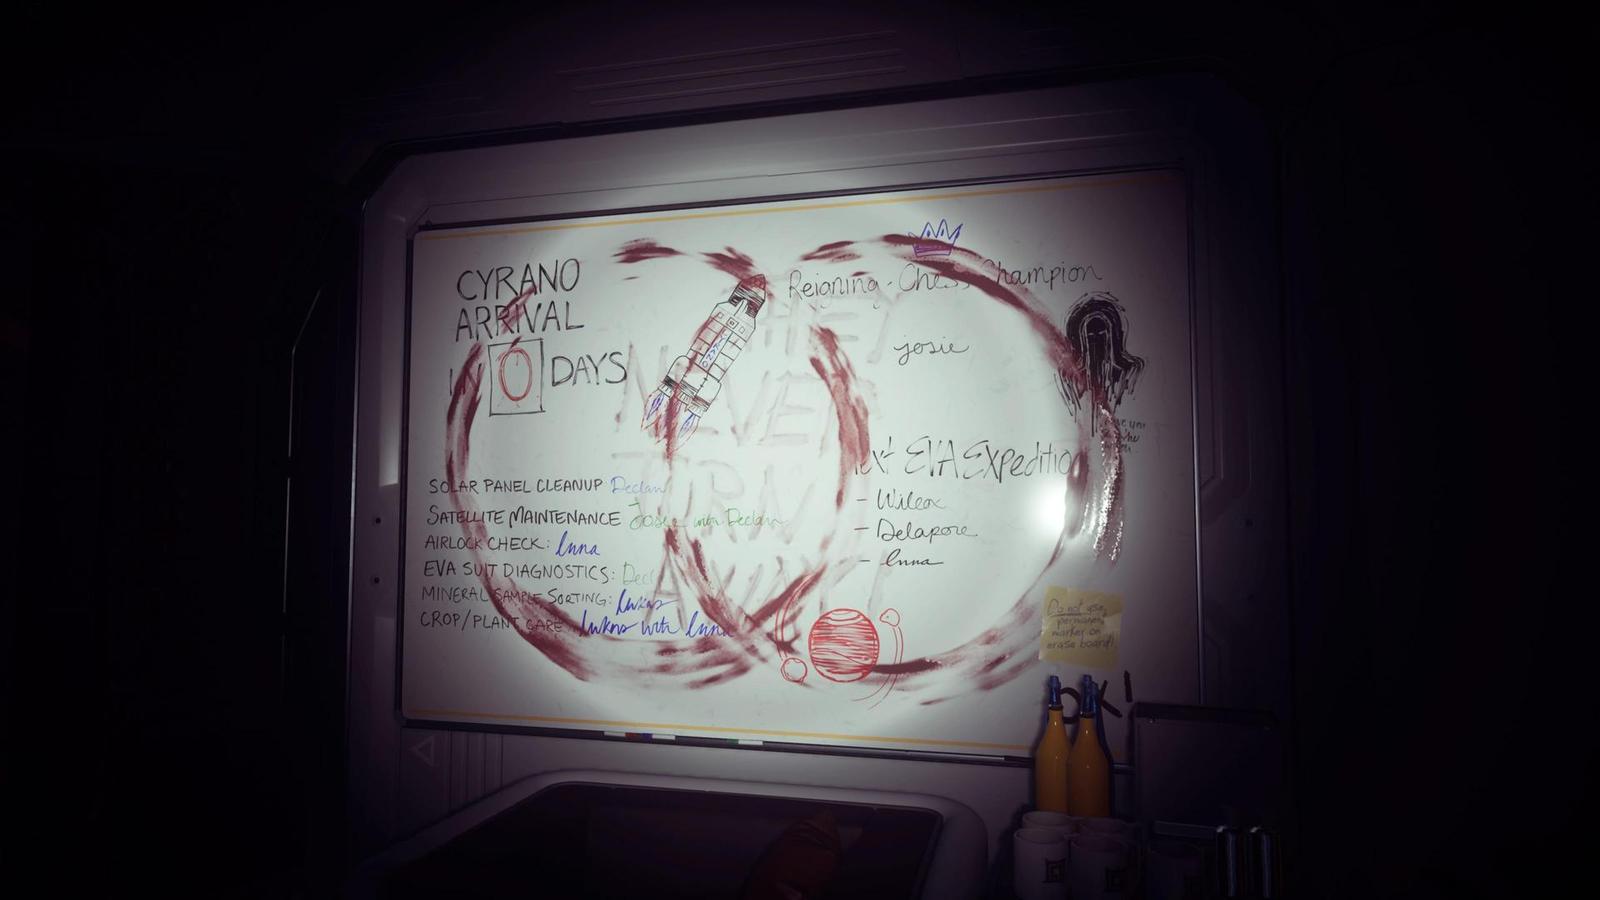 CYRANO
ARRIVAL
IN 0 DAYS
Reigning Chess Champion
Josie
THEY
NEVER
TURN
AWAY
SOLAR PANEL CLEANUP Declan
SATELLITE MAINTENANCE Josie with Declan
AIRLOCK CHECK: Inna
EVA SUIT DIAGNOSTICS: Decl
MINERAL SAMPLE SORTING: Lukas
CROP/PLANT CARE Lukas with Inna
Next EVA Expedition
- Wilcox
- Delapore
- Inna
Do not use
permanent
marker on
erase board!
OK!